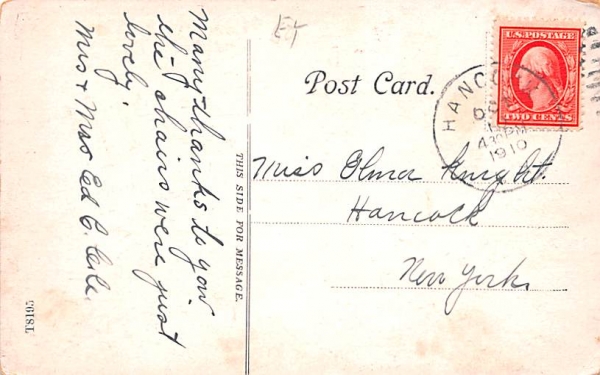 Many-thanks to you
the chairs were just
lovely.
Mr & Mrs Ed C.
THIS SIDE FOR MESSAGE.
T8195
Et
Post Card.
U.S. POSTAGE
TWO CENTS
HANCO
D
430 PM
1910
Miss Elma Knight.
Hancock
New York.